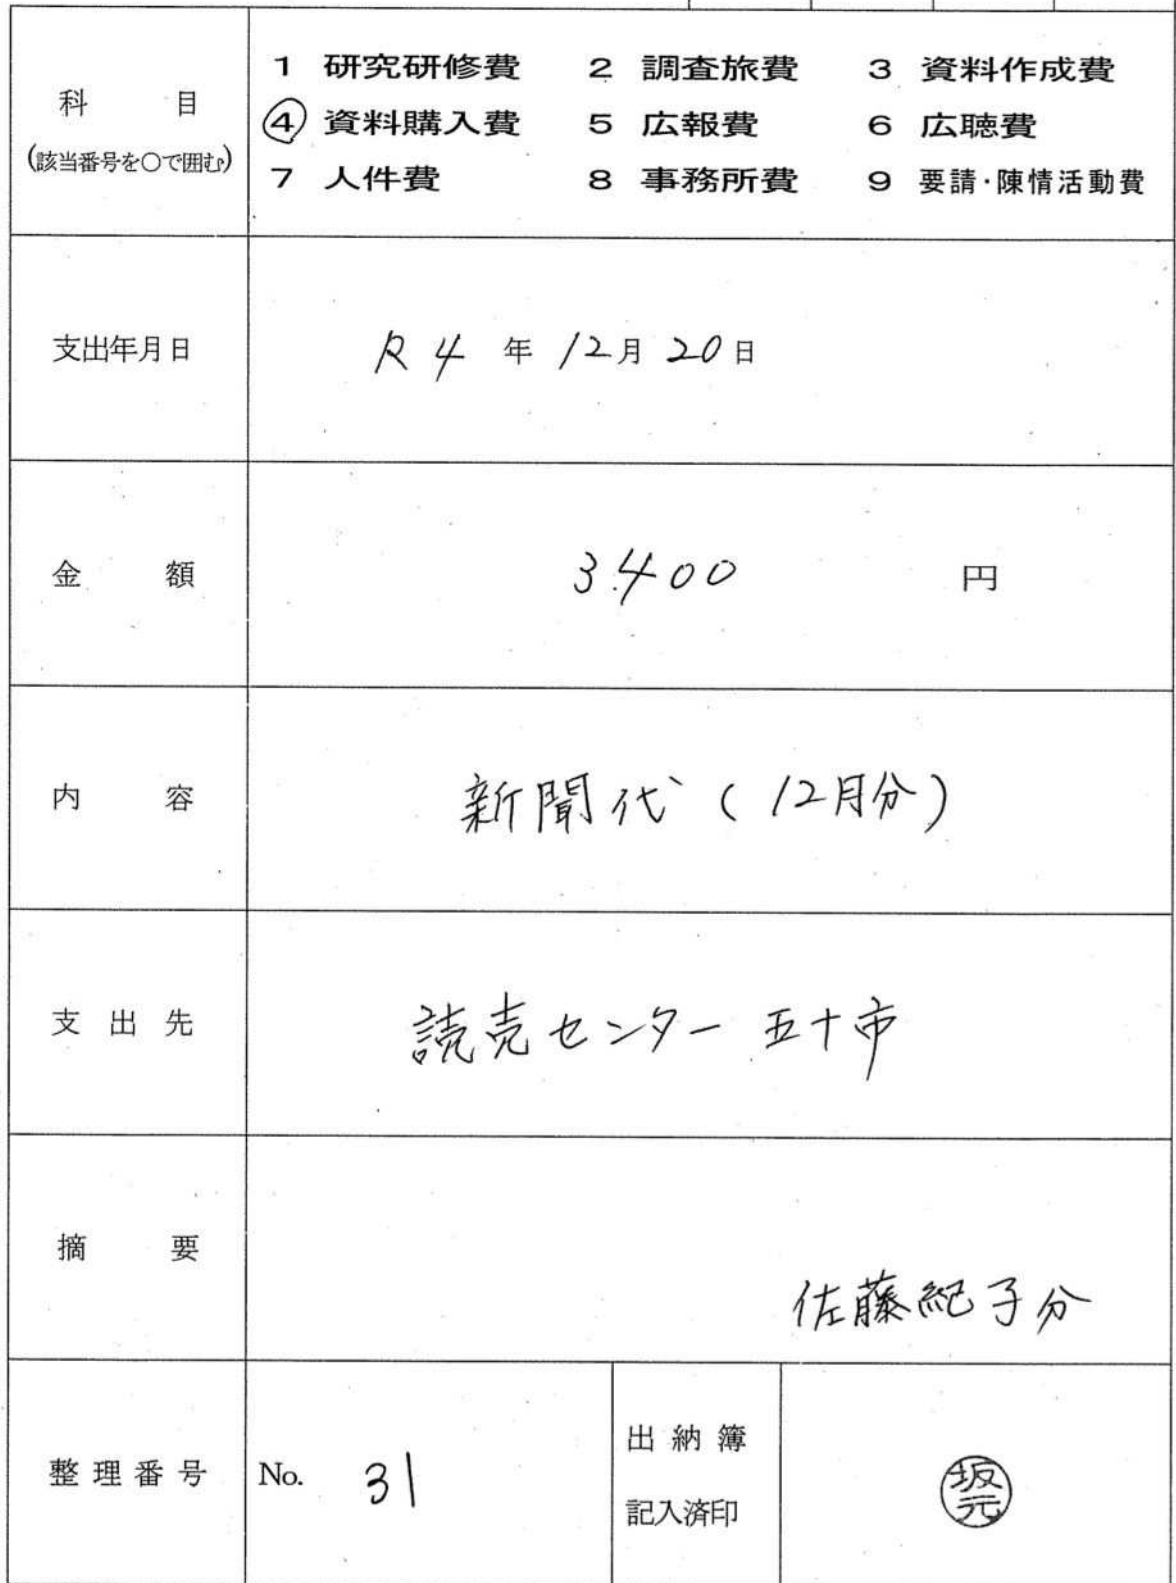 科 目
(該当番号を○で囲む)
1 研究研修費 2 調査旅費 3 資料作成費
④ 資料購入費 5 広報費 6 広聴費
7 人件費 8 事務所費 9 要請・陳情活動費
支出年月日 R4 年 12月 20日
金 額 3.400 円
内 容 新聞代 (12月分)
支 出 先 読売センター 五十市
摘 要 佐藤紀子分
整理番号 No. 31
出納簿
記入済印
坂元